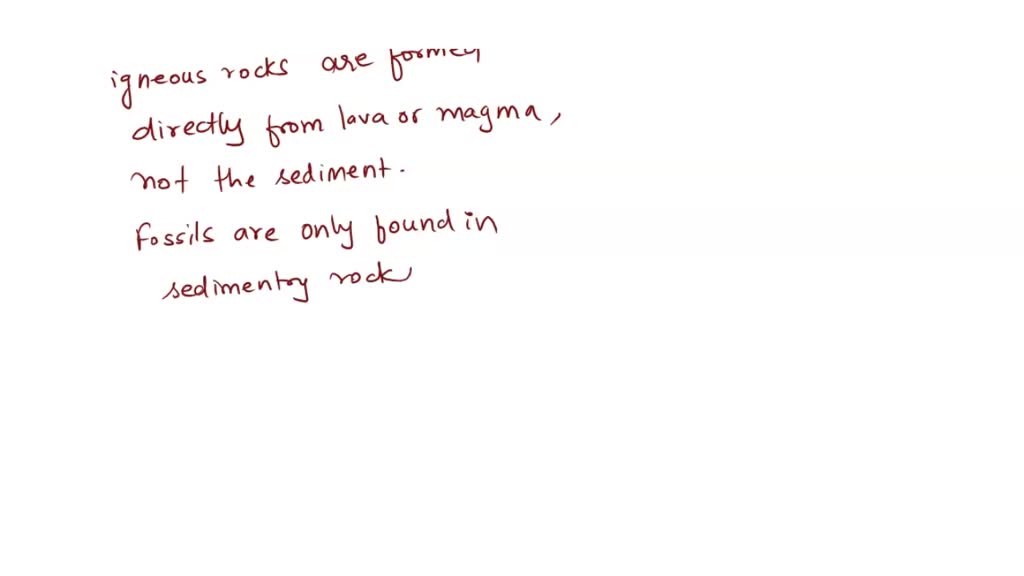 igneous rocks are formed
directly from lava or magma,
not the sediment.
Fossils are only found in
sedimentry rock